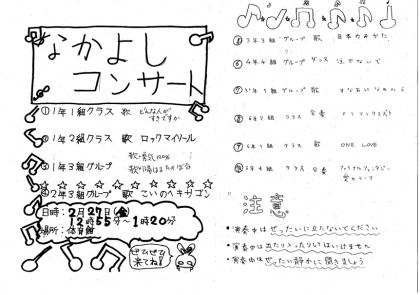 なかよし
コンサート
①1年1組クラス 歌 どんな人がすきですか
②1年2組クラス 歌 ロックマイソール
③1年3組グループ 歌・勇気100%
歌・陽はまたのぼる
④2年3組グループ 歌 こいのヘキサゴン
日時:2月27日(金)
12時55分〜1時20分
場所:体育館
ぜひぜひ
来てね!
⑤3年3組 グループ 歌 日本のみかた
⑥4年4組 グループ ダンス 泣かないで
⑦5年1組 グループ 歌
⑧6年2組 クラス 合奏
⑨6年1組 クラス 歌 ONE LOVE
⑩5年4組 クラス 合奏 ファイナルファンタジー
愛のテーマ
注意
・演奏中はぜったいに立たないでください
・演奏中は出たり入ったりしてはいけません
・演奏中はぜったい静かに聞きましょう